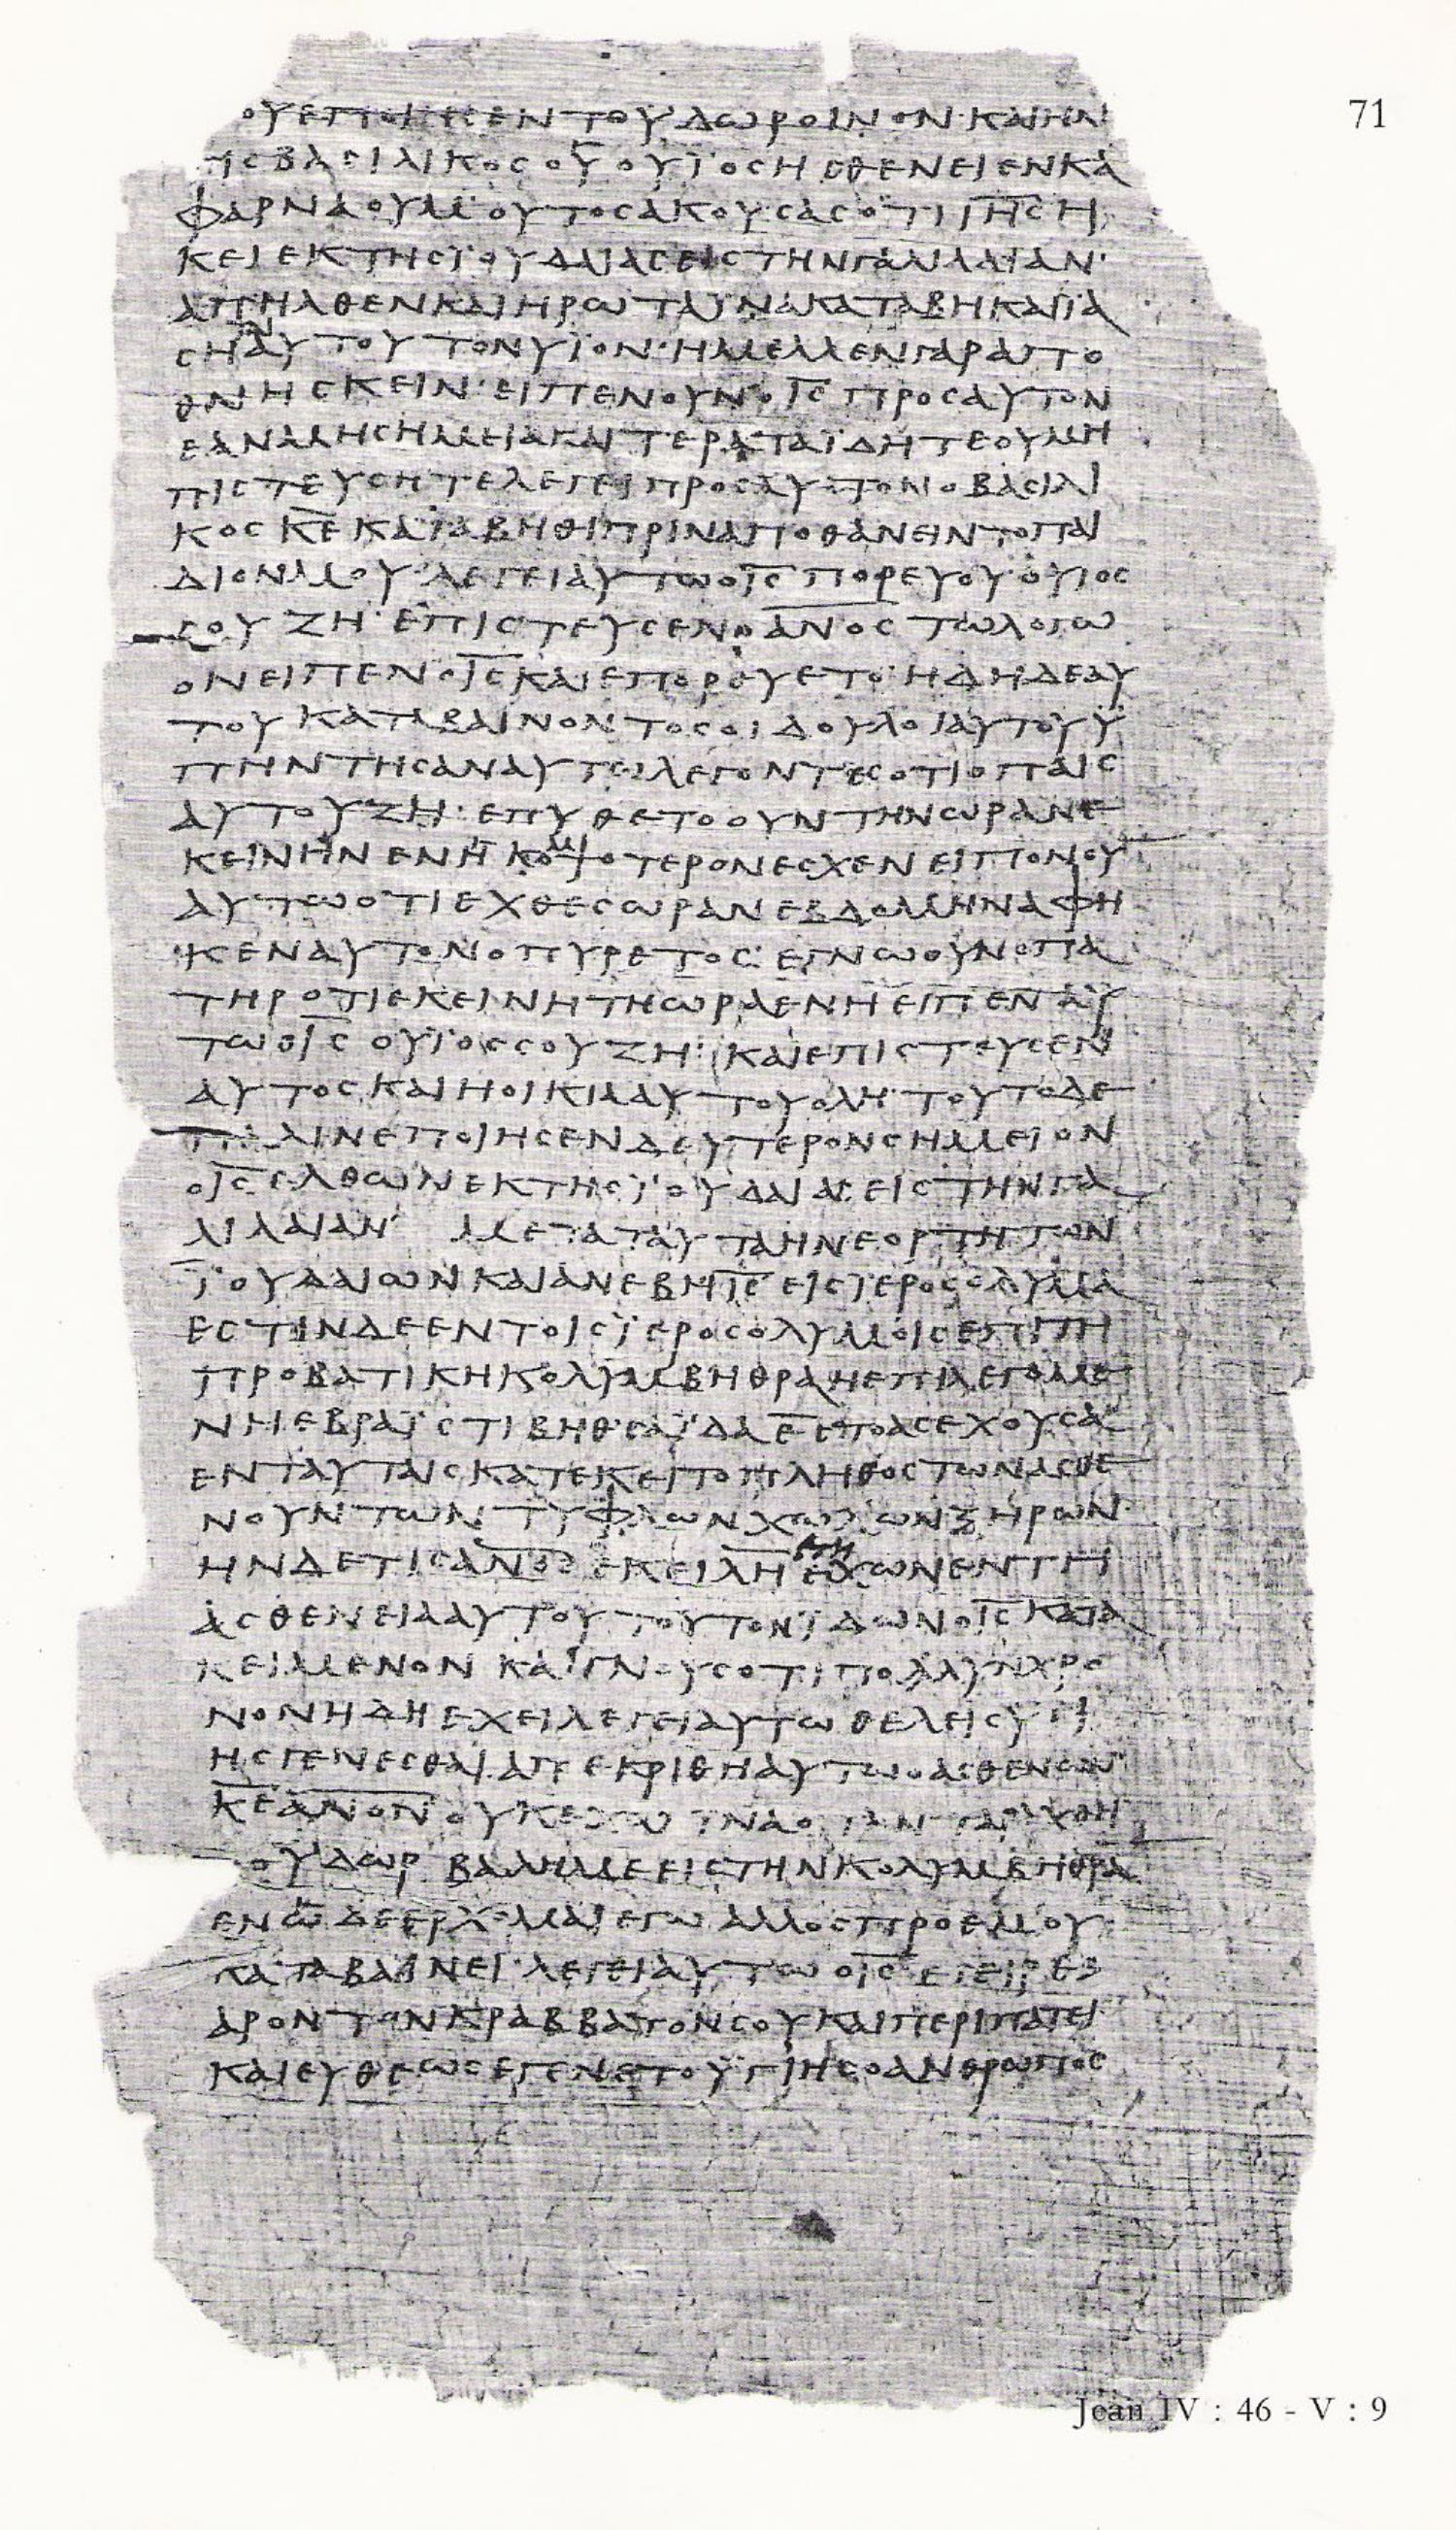 71
ΟΥΕΠΟΙΗϹΕΝΤΟΫΔΩΡΟΙΝΟΝ·ΚΑΙΗΝ
ΤΙϹΒΑϹΙΛΙΚΟϹΟΫΟΥΪΟϹΗϹΘΕΝΕΙΕΝΚΑ
ΦΑΡΝΑΟΥΜ·ΟΥΤΟϹΑΚΟΥϹΑϹΟΤΙΙΗ̅Ϲ̅Η
ΚΕΙΕΚΤΗϹΪΟΥΔΑΙΑϹΕΙϹΤΗΝΓΑΛΙΛΑΙΑΝ·
ΑΠΗΛΘΕΝΚΑΙΗΡΩΤΑΪΝΑΚΑΤΑΒΗΚΑΙΪΑ
ϹΗΑΥΤΟΥΤΟΝΥΪΟΝ·ΗΜΕΛΛΕΝΓΑΡΑΠΟ
ΘΝΗϹΚΕΙΝ·ΕΙΠΕΝΟΥΝΟΙ̅Ϲ̅ΠΡΟϹΑΥΤΟΝ
ΕΑΝΜΗϹΗΜΕΙΑΚΑΙΤΕΡΑΤΑΪΔΗΤΕΟΥΜΗ
ΠΙϹΤΕΥϹΗΤΕΛΕΓΕΙΠΡΟϹΑΥΤΟΝΟΒΑϹΙΛΙ
ΚΟϹΚ̅Ε̅ΚΑΤΑΒΗΘΙΠΡΙΝΑΠΟΘΑΝΕΙΝΤΟΠΑΙ
ΔΙΟΝΜΟΥ·ΛΕΓΕΙΑΥΤΩΟΙ̅Ϲ̅ΠΟΡΕΥΟΥ·ΟΥΪΟϹ
ϹΟΥΖΗ·ΕΠΙϹΤΕΥϹΕΝΟΑ̅Ν̅Ο̅Ϲ̅ΤΩΛΟΓΩ
ΟΝΕΙΠΕΝΟΙ̅Ϲ̅ΚΑΙΕΠΟΡΕΥΕΤΟ·ΗΔΗΔΕΑΥ
ΤΟΥΚΑΤΑΒΑΙΝΟΝΤΟϹΟΙΔΟΥΛΟΙΑΥΤΟΥΫ
ΠΗΝΤΗϹΑΝΑΥΤΩΛΕΓΟΝΤΕϹΟΤΙΟΠΑΙϹ
ΑΥΤΟΥΖΗ·ΕΠΥΘΕΤΟΟΥΝΤΗΝΩΡΑΝΕ
ΚΕΙΝΗΝΕΝΗΚΟΜΨΟΤΕΡΟΝΕϹΧΕΝΕΙΠΟΝΟΥ
ΑΥΤΩΟΤΙΕΧΘΕϹΩΡΑΝΕΒΔΟΜΗΝΑΦΗ
ΚΕΝΑΥΤΟΝΟΠΥΡΕΤΟϹ·ΕΓΝΩΟΥΝΟΠΑ
ΤΗΡΟΤΙΕΚΕΙΝΗΤΗΩΡΑΕΝΗΕΙΠΕΝΑΥ
ΤΩΟΙ̅Ϲ̅ΟΥΪΟϹϹΟΥΖΗ·ΚΑΙΕΠΙϹΤΕΥϹΕΝ
ΑΥΤΟϹΚΑΙΗΟΙΚΙΑΑΥΤΟΥΟΛΗ·ΤΟΥΤΟΔΕ
ΠΑΛΙΝΕΠΟΙΗϹΕΝΔΕΥΤΕΡΟΝϹΗΜΕΙΟΝ
ΟΙ̅Ϲ̅ΕΛΘΩΝΕΚΤΗϹΪΟΥΔΑΙΑϹΕΙϹΤΗΝΓΑ
ΛΙΛΑΙΑΝ· ΜΕΤΑΤΑΥΤΑΗΝΕΟΡΤΗΤΩΝ
ΪΟΥΔΑΙΩΝΚΑΙΑΝΕΒΗΙ̅Ϲ̅ΕΙϹΪΕΡΟϹΟΛΥΜΑ
ΕϹΤΙΝΔΕΕΝΤΟΙϹΪΕΡΟϹΟΛΥΜΟΙϹΕΠΙΤΗ
ΠΡΟΒΑΤΙΚΗΚΟΛΥΜΒΗΘΡΑΗΕΠΙΛΕΓΟΜΕ
ΝΗΕΒΡΑΪϹΤΙΒΗΘϹΑΪΔΑΕ̅ϹΤΟΑϹΕΧΟΥϹΑ
ΕΝΤΑΥΤΑΙϹΚΑΤΕΚΕΙΤΟΠΛΗΘΟϹΤΩΝΑϹΘΕ
ΝΟΥΝΤΩΝΤΥΦΛΩΝΧΩΛΩΝΞΗΡΩΝ·
ΗΝΔΕΤΙϹΑ̅Ν̅Ο̅Ϲ̅ΕΚΕΙΛ̅Η̅ΕΤΗΕΧΩΝΕΝΤΗ
ΑϹΘΕΝΕΙΑΑΥΤΟΥ·ΤΟΥΤΟΝΪΔΩΝΟΙ̅Ϲ̅ΚΑΤΑ
ΚΕΙΜΕΝΟΝΚΑΙΓΝΟΥϹΟΤΙΠΟΛΥΝΧΡΟ
ΝΟΝΗΔΗΕΧΕΙΛΕΓΕΙΑΥΤΩΘΕΛΕΙϹΫΓΙ
ΗϹΓΕΝΕϹΘΑΙ·ΑΠΕΚΡΙΘΗΑΥΤΩΟΑϹΘΕΝΩΝ
Κ̅Ε̅Α̅Ν̅Ο̅Ν̅ΟΥΚΕΧΩΪΝΑΟΤΑΝΤΑΡΑΧΘΗ
ΤΟΫΔΩΡΒΑΛΗΜΕΕΙϹΤΗΝΚΟΛΥΜΒΗΘΡΑ
ΕΝΩΔΕΕΡΧΟΜΑΙΕΓΩΑΛΛΟϹΠΡΟΕΜΟΥ
ΚΑΤΑΒΑΙΝΕΙ·ΛΕΓΕΙΑΥΤΩΟΙ̅Ϲ̅ΕΓΕΙΡΕ
ΑΡΟΝΤΟΝΚΡΑΒΒΑΤΟΝϹΟΥΚΑΙΠΕΡΙΠΑΤΕΙ
ΚΑΙΕΥΘΕΩϹΕΓΕΝΕΤΟΫΓΙΗϹΟΑΝΘΡΩΠΟϹ
Jean IV : 46 - V : 9